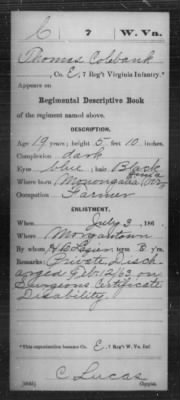 C | 7 | W. Va.
Thomas Colebank
, Co. E, 7 Reg't Virginia Infantry.*
Appears on
Regimental Descriptive Book
of the regiment named above.
DESCRIPTION.
Age 19 years; height 5 feet 10 inches.
Complexion dark
Eyes blue; hair Black
Where born Monongalia Virginia
Occupation Farmer
ENLISTMENT.
When July 3, 186 .
Where Morgantown
By whom H B Lazier term 3 y'rs.
Remarks: Private Disch-
arged Feb 12/63 on
Surgeons Certificate
Disability.
*This organization became Co. E, 7 Reg't W. Va. Inf.
C. Lucas
Copyist.